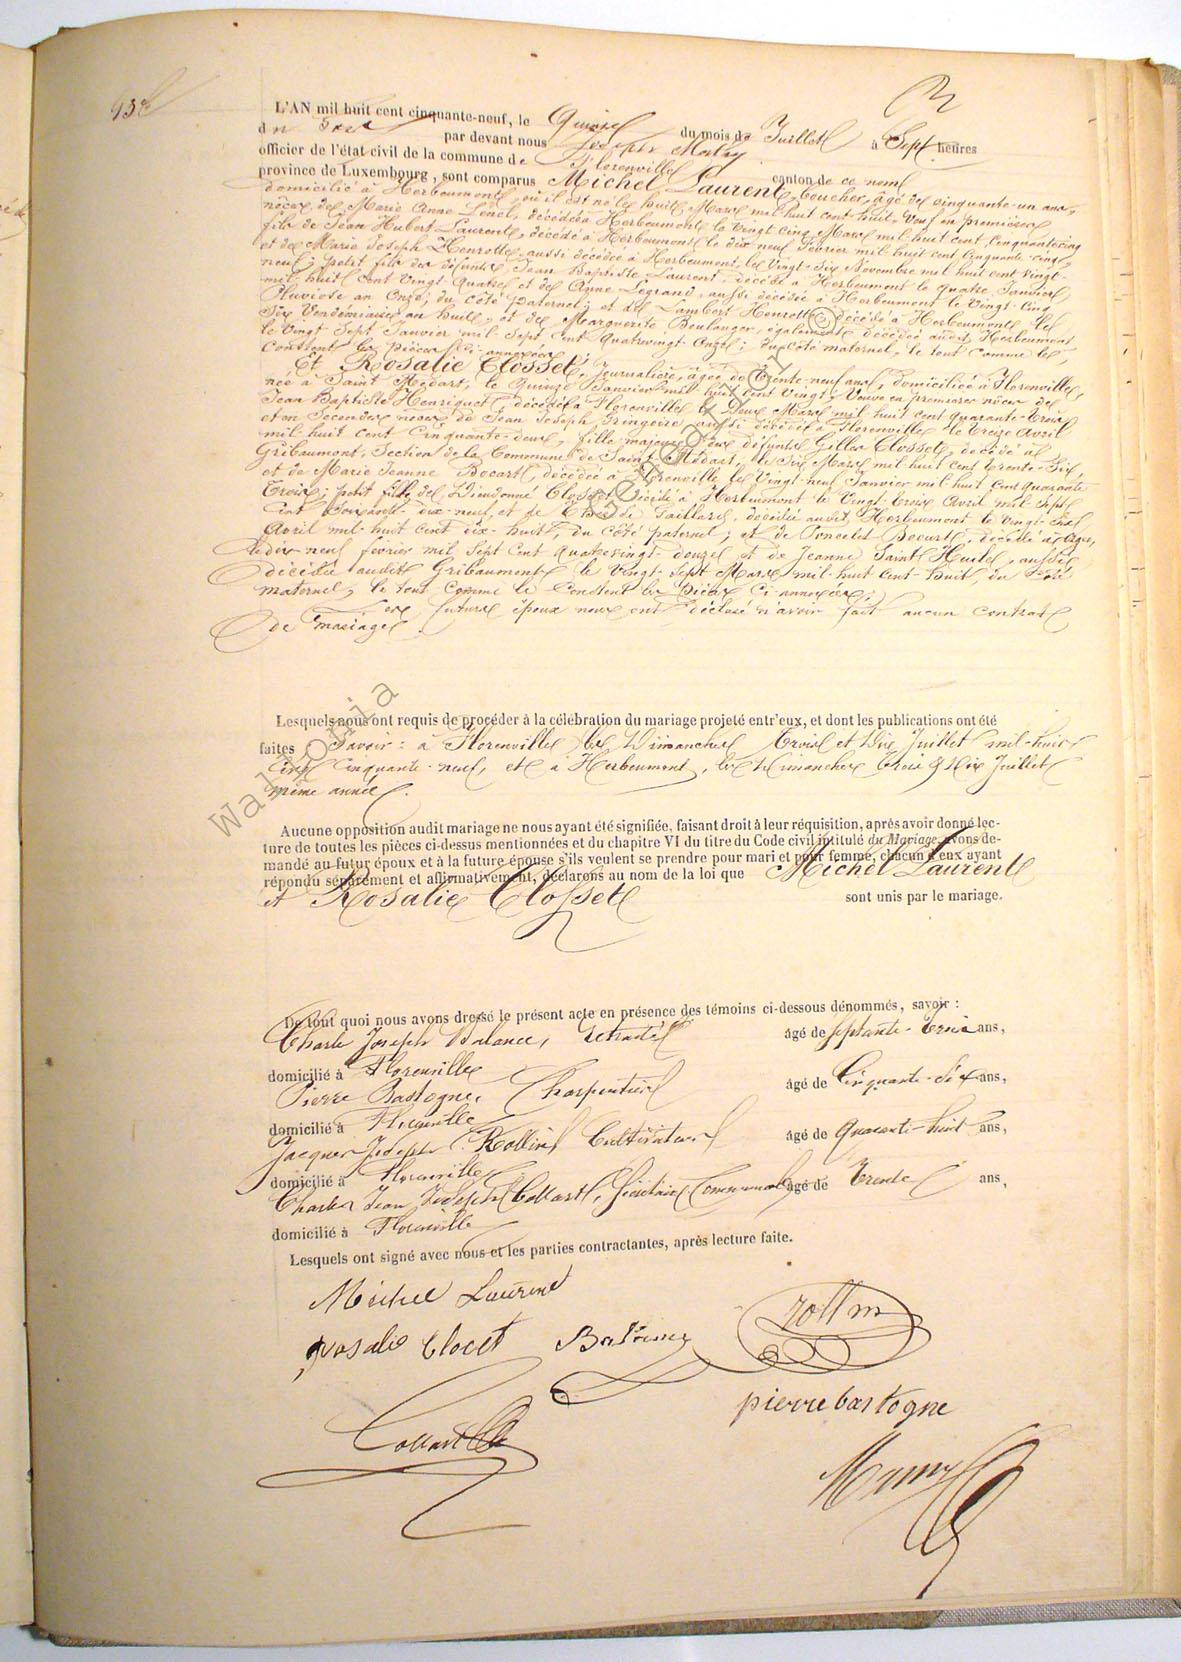 L'AN mil huit cent cinquante-neuf, le Quinze du mois de Juillet à Sept heures
du Soir par devant nous Joseph
officier de l'état civil de la commune de Florenville canton de ce nom
province de Luxembourg, sont comparus Michel Laurent, boucher, âgé de cinquante-un ans,
domicilié à Herbeumont, où il est né le huit Mars mil huit cent huit, Veuf en premières
nôces de Marie Anne Lenel, décédée à Herbeumont le vingt cinq Mars mil huit cent cinquante cinq
fils de Jean Hubert Laurent, décédé à Herbeumont le dix neuf Février mil huit cent cinquante cinq
et de Marie Joseph Henrotte, aussi décédée à Herbeumont, le Vingt-Six Novembre mil huit cent vingt-
neuf; petit fils des défunts Jean Baptiste Laurent, décédé à Herbeumont le quatre Janvier
mil huit cent vingt quatre et de Anne Legrand, aussi décédée à Herbeumont le vingt-cinq
Pluviose an Onze, du côté paternel; et de Lambert Henrotte, décédé à Herbeumont le
Six Vendémiaire an huit, et de Marguerite Boulanger, également décédée audit Herbeumont
le vingt Sept Janvier mil-Sept cent quatrevingt-onze; du côté maternel, le tout comme le
constent les pièces ci-annexées;
Et Rosalie Closset, Journalière, âgée de Trente-neuf ans, domiciliée à Florenville,
née à Saint Médart, le Quinze Janvier mil huit cent vingt, Veuve en premières nôces de
Jean Baptiste Henriquet, décédé à Florenville le Deux Mars mil huit cent quarante-Trois
et en Secondes nôces de Jean Joseph Gringoire aussi décédé à Florenville le Treize Avril
mil huit cent cinquante-deux, fille majeure des défunts Gilles Closset, décédé à
Gribaumont, Section de la Commune de Saint Médart, le Six Mars mil huit cent trente-Six,
et de Marie Jeanne Bocart, décédée à Florenville le Vingt-neuf Janvier mil huit cent quarante
Trois; petit fille de Dieudonné Closset décédé à Herbeumont le Vingt-Trois Avril mil Sept
cent Soixante-dix-neuf, et de Gaillard, décédée audit Herbeumont le vingt-
Avril mil huit cent dix-huit, du côté paternel; et de Poncelet Bocart, décédé
le dix neuf février mil Sept cent quatrevingt-douze et de Jeanne Saint Huile, aussi
décédée audit Gribaumont le Vingt-Sept Mars mil-huit cent-huit du côté
maternel, le tout comme le constent les pièces ci-annexées;
Les futurs époux nous ont déclaré n'avoir fait aucun contrat
de mariage.
Lesquels nous ont requis de procéder à la célébration du mariage projeté entr'eux, et dont les publications ont été
faites Savoir: à Florenville les Dimanches Trois et Dix Juillet mil-huit
cent cinquante-neuf, et à Herbeumont, les Dimanches Trois & Dix Juillet
même année.
Aucune opposition audit mariage ne nous ayant été signifiée, faisant droit à leur réquisition, après avoir donné lec-
ture de toutes les pièces ci-dessus mentionnées et du chapitre VI du titre du Code civil intitulé du Mariage, avons de-
mandé au futur époux et à la future épouse s'ils veulent se prendre pour mari et pour femme, chacun d'eux ayant
répondu séparément et affirmativement, déclarons au nom de la loi que Michel Laurent
et Rosalie Closset sont unis par le mariage.
De tout quoi nous avons dressé le présent acte en présence des témoins ci-dessous dénommés, savoir :
Charle Joseph Balance, Retraité âgé de Septante-Trois ans,
domicilié à Florenville
Pierre Bastogne, Charpentier âgé de Cinquante-Six ans,
domicilié à Florenville
Jacques Joseph Rollin Cultivateur âgé de Quarante-huit ans,
domicilié à Florenville
Charles Jean Joseph Collart, Sécrétaire Communal âgé de Trente ans,
domicilié à Florenville
Lesquels ont signé avec nous et les parties contractantes, après lecture faite.
Michel Laurent
Rollin
rosalie Clocet
Balance
pierre bastogne
Collart
Wallonia © Geneanet.org